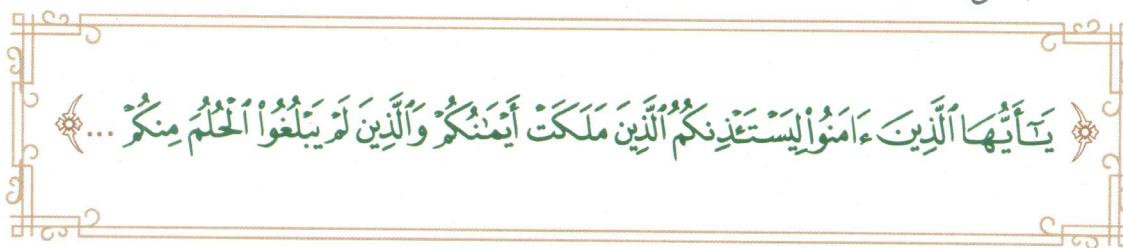 ﴿ يَٰٓأَيُّهَا ٱلَّذِينَ ءَامَنُوا۟ لِيَسْتَـْٔذِنكُمُ ٱلَّذِينَ مَلَكَتْ أَيْمَٰنُكُمْ وَٱلَّذِينَ لَمْ يَبْلُغُوا۟ ٱلْحُلُمَ مِنكُمْ ... ﴾